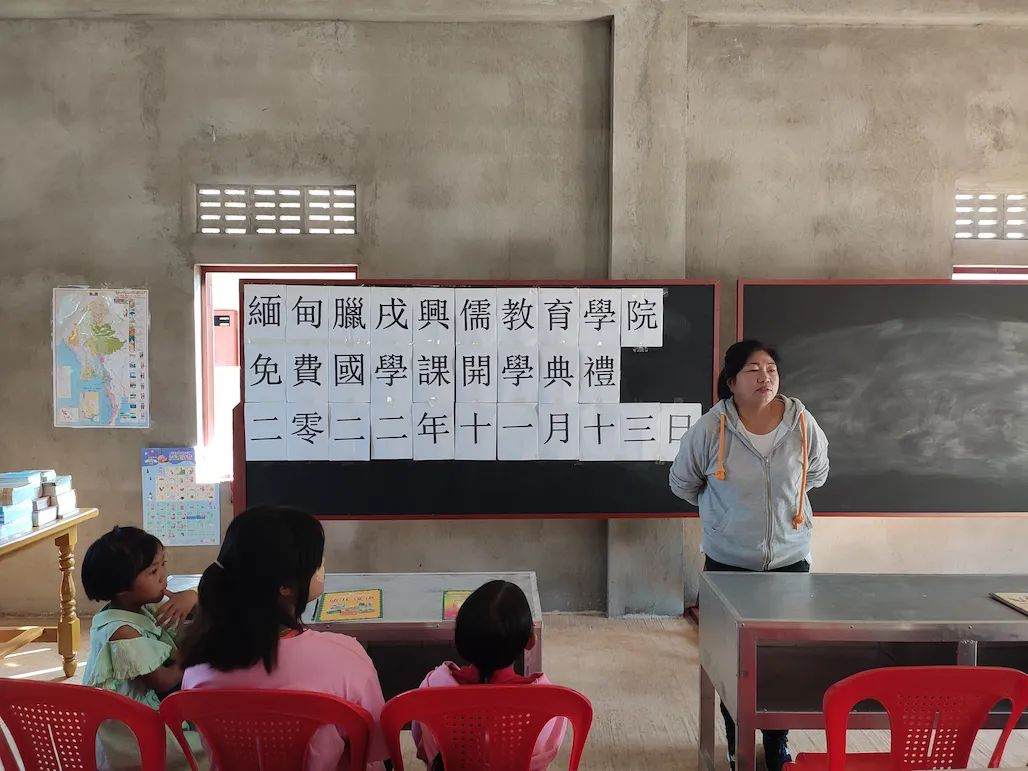 緬甸臘戌興儒教育學院
免費國學課開學典禮
二零二二年十一月十三日